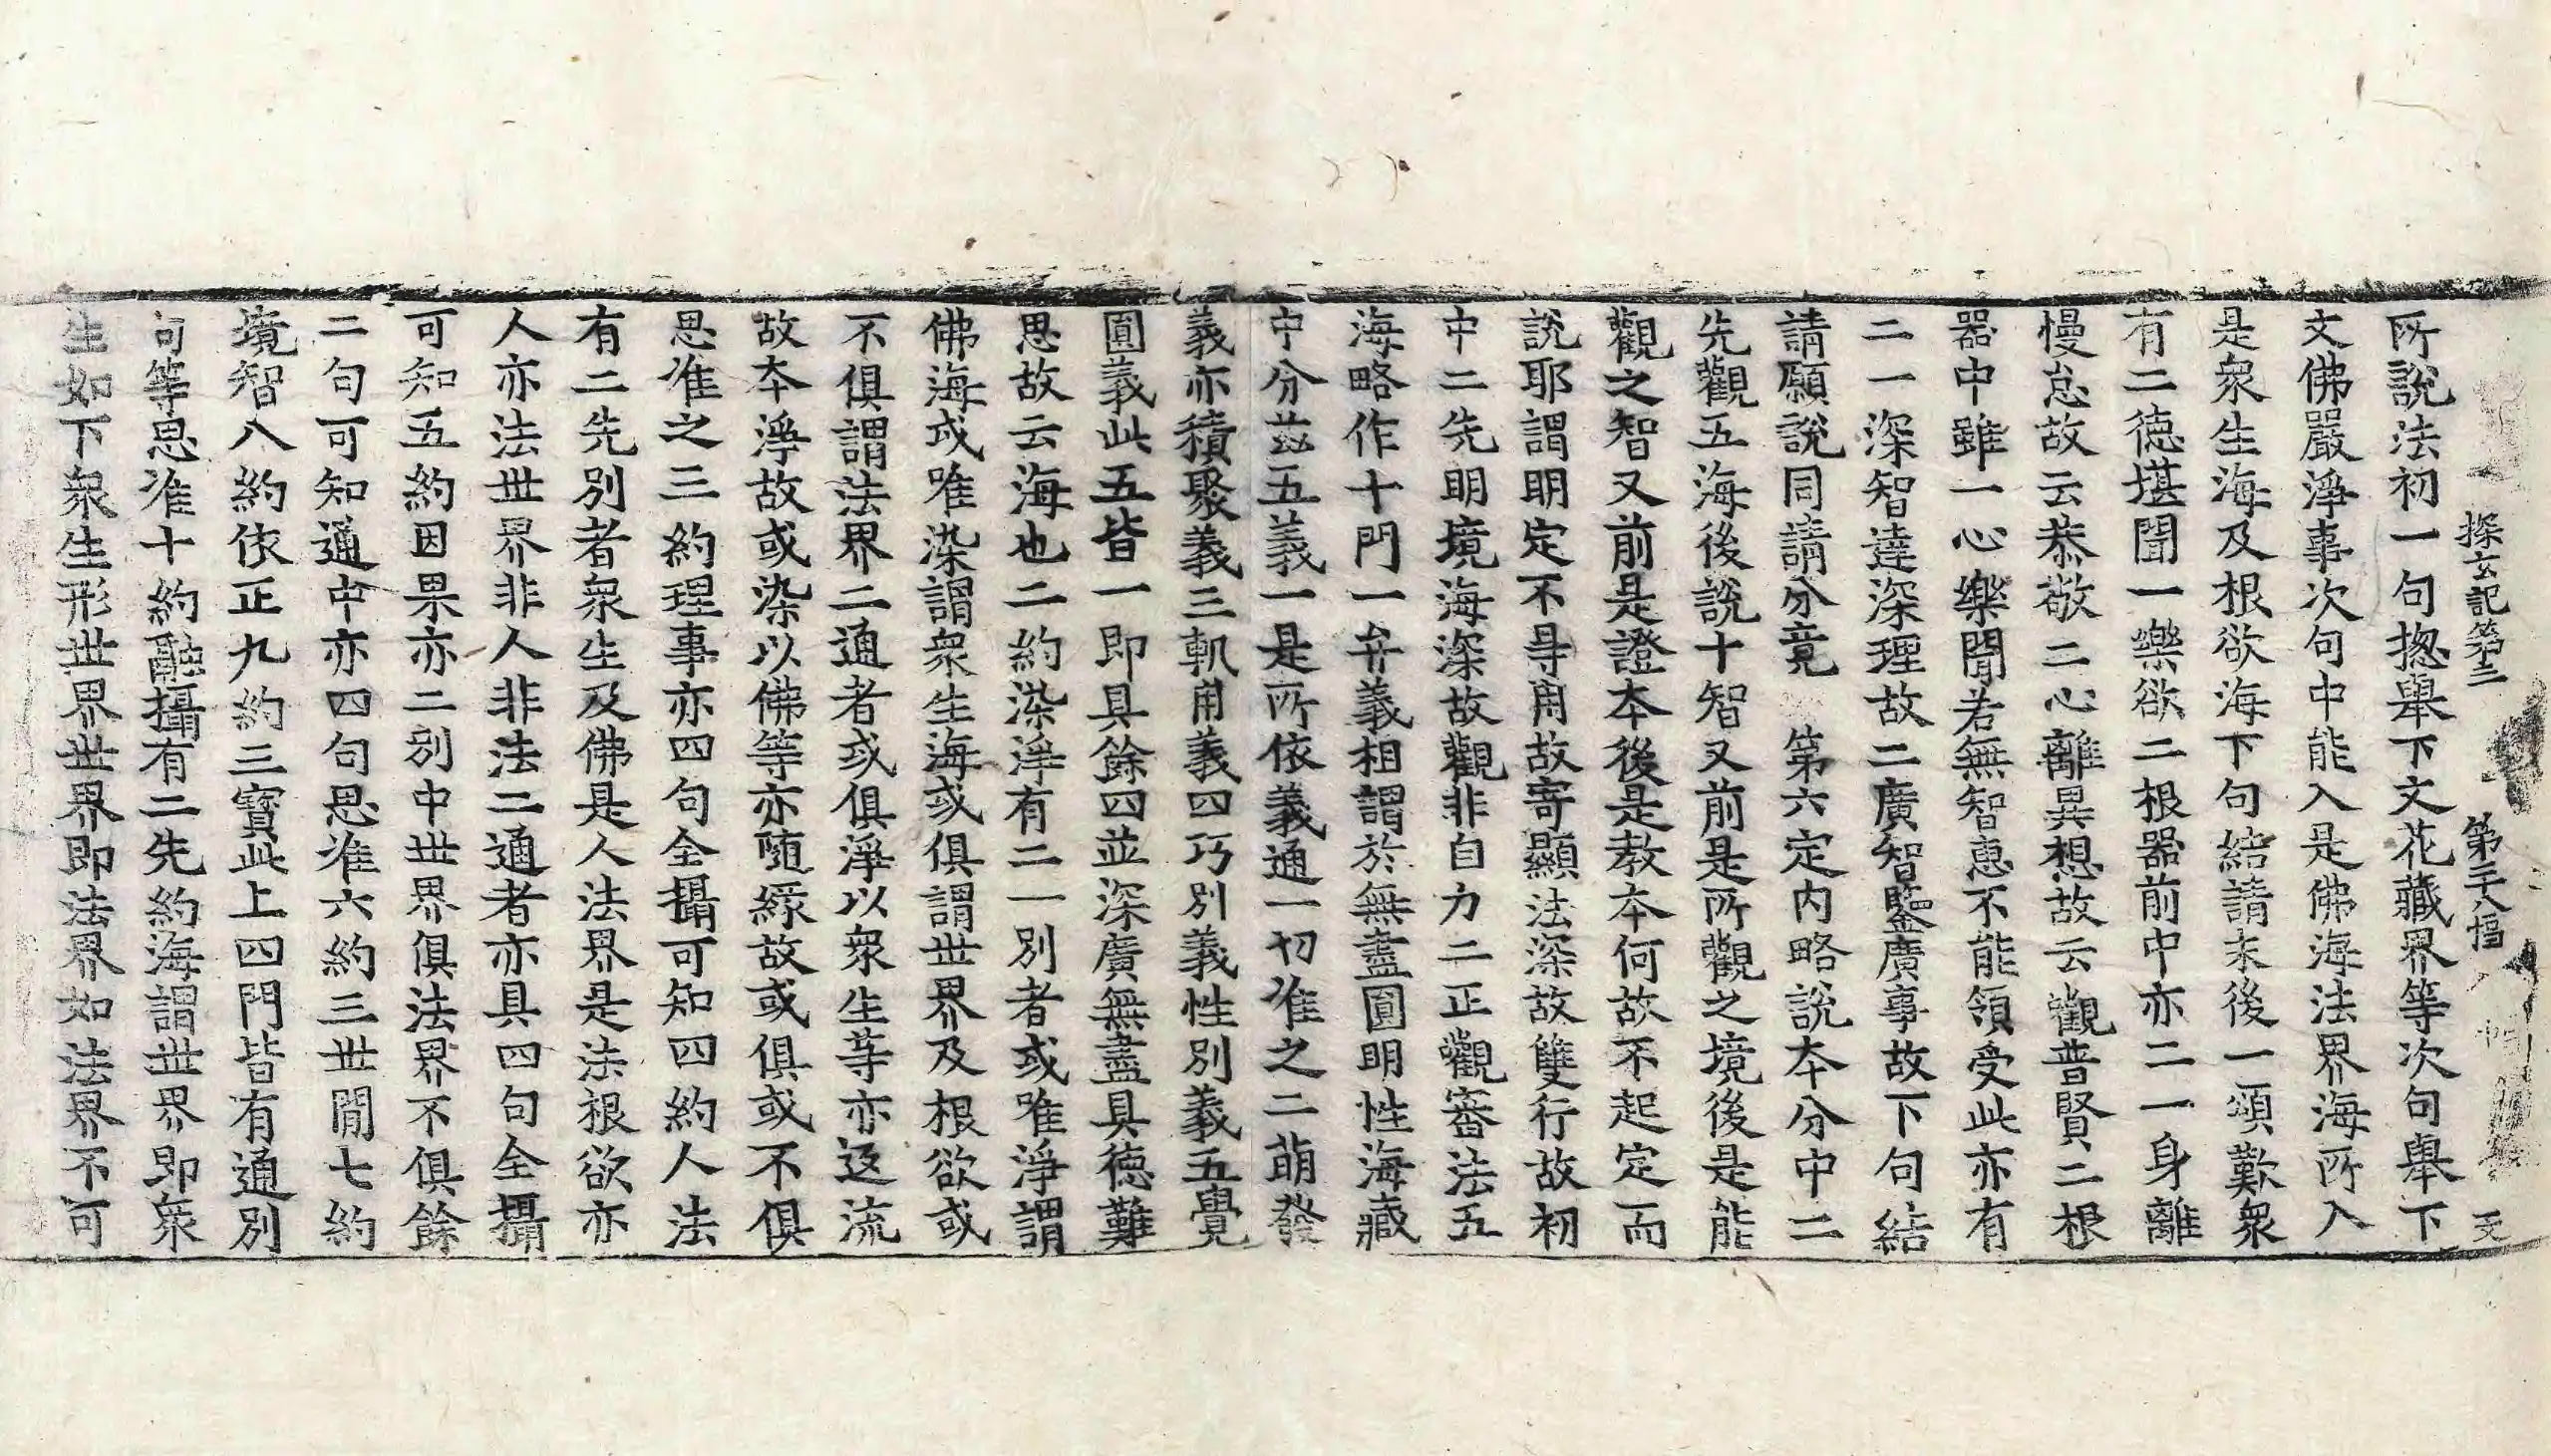 探玄記第三 第二十八幅 天
所說法初一句揔舉下文花藏界等次句舉下
文佛嚴淨事次句中能入是佛海法界海所入
是衆生海及根欲海下句結請末後一頌歎衆
有二德堪聞一樂欲二根器前中亦二一身離
慢怠故云恭敬二心離異想故云觀普賢二根
器中雖一心樂聞若無智惠不能領受此亦有
二一深智達深理故二廣智鑒廣事故下句結
請願說同請分竟 第六定內略說本分中二
先觀五海後說十智又前是所觀之境後是能
觀之智又前是證本後是教本何故不起定而
說耶謂明定不㝵用故寄顯法深故雙行故初
中二先明境海深故觀非自力二正觀審法五
海略作十門一弁義相謂於無盡圓明性海藏
中分茲五義一是所依義通一切准之二萌發
義亦積聚義三軌用義四巧別義性別義五覺
圓義此五皆一即具餘四並深廣無盡具德難
思故云海也二約染淨有二一別者或唯淨謂
佛海或唯染謂衆生海或俱謂世界及根欲或
不俱謂法界二通者或俱淨以衆生等亦返流
故本淨故或染以佛等亦随緣故或俱或不俱
思准之三約理事亦四句全攝可知四約人法
有二先別者衆生及佛是人法界是法根欲亦
人亦法世界非人非法二通者亦具四句全攝
可知五約因果亦二別中世界俱法界不俱餘
二句可知通中亦四句思准六約三世間七約
境智八約依正九約三寶此上四門皆有通別
句等思准十約融攝有二先約海謂世界即衆
生如下衆生形世界世界即法界如法界不可